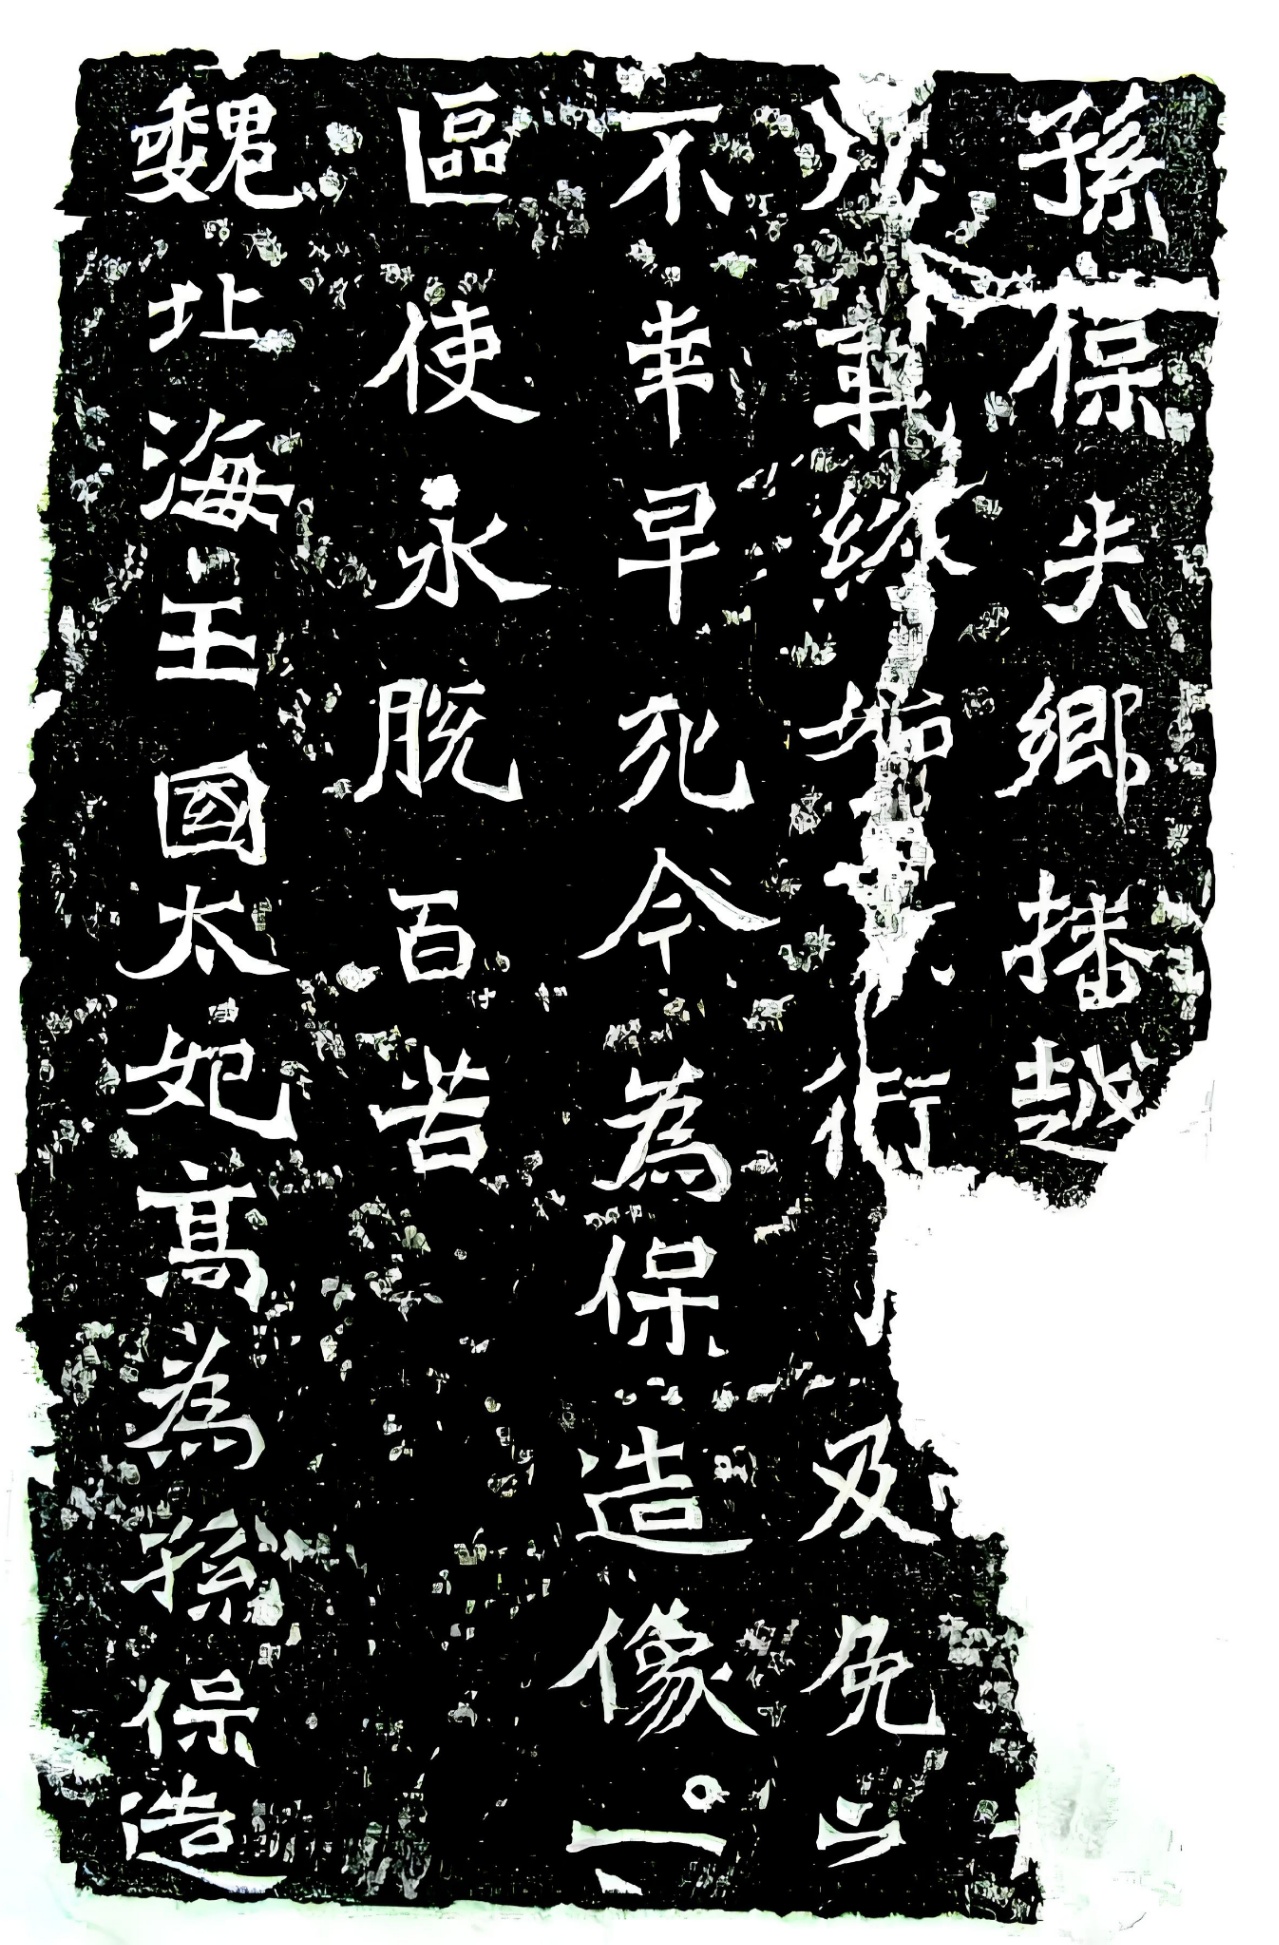 孫保失鄉播越
終於衍及免
不幸早死今為保造像一
區使永脫百苦
魏北海王國太妃高為孫保造